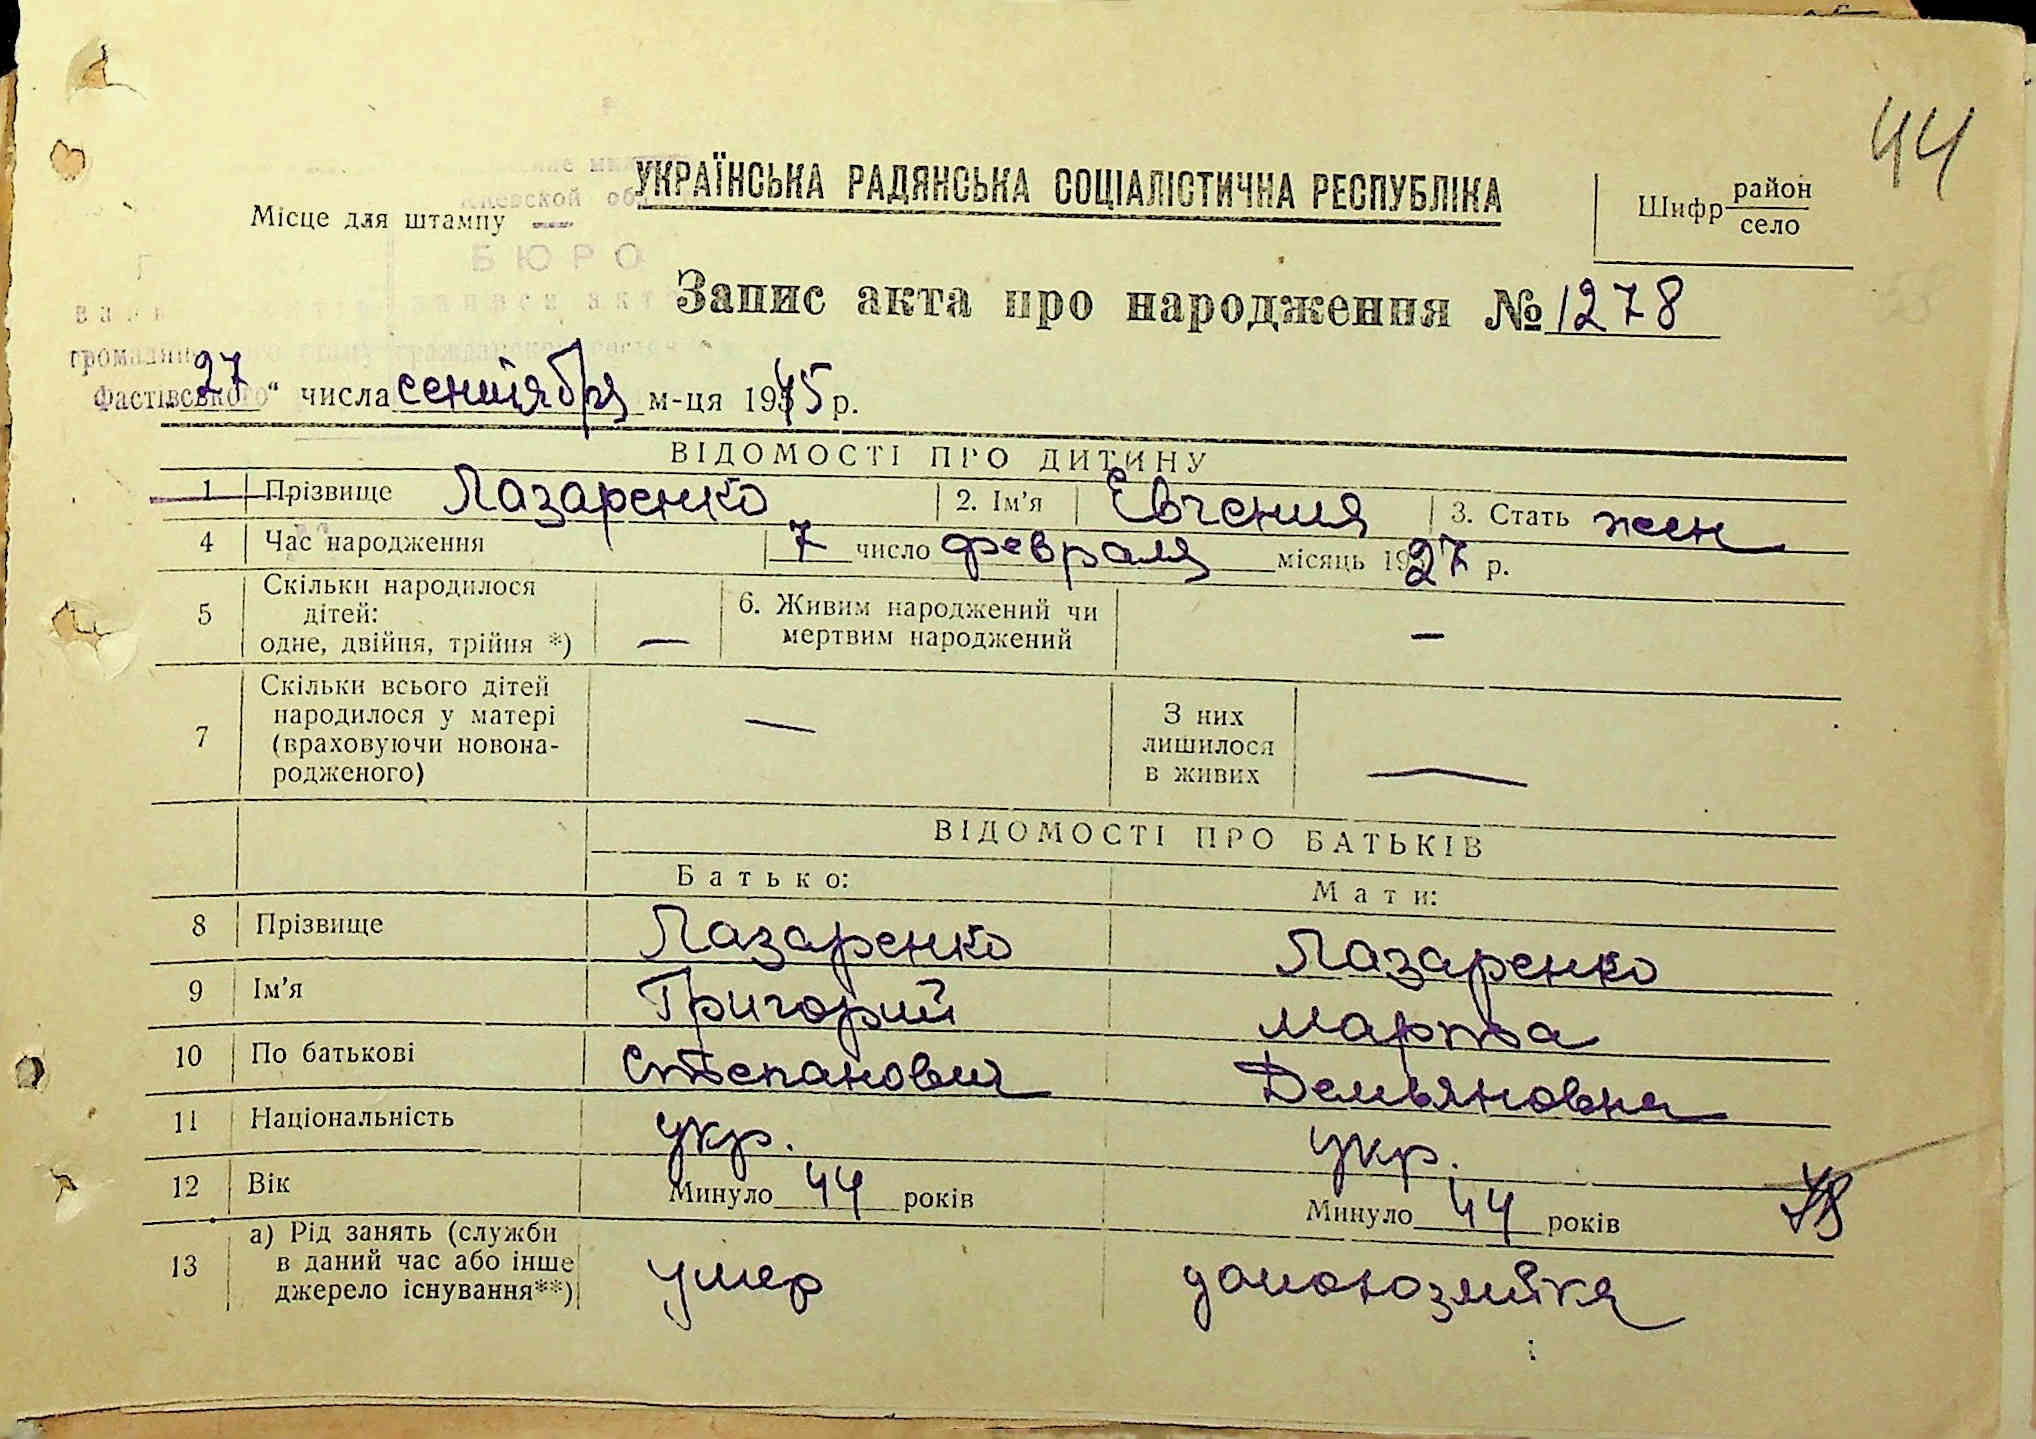 44
УКРАЇНСЬКА РАДЯНСЬКА СОЦІАЛІСТИЧНА РЕСПУБЛІКА
Місце для штампу
Киевской
Шифр район
село
БЮРО
Запис акта про народження № 1278
громадян
Фастівського
„27“ числа сентября м-ця 1945 р.
ВІДОМОСТІ ПРО ДИТИНУ
1 Прізвище Лазаренко 2. Ім'я Евгения 3. Стать жен
4 Час народження 7 число февраля місяць 1927 р.
5 Скільки народилося
дітей:
одне, двійня, трійня *) —
6. Живим народжений чи
мертвим народжений —
7 Скільки всього дітей
народилося у матері
(враховуючи новона-
родженого) —
З них
лишилося
в живих —
ВІДОМОСТІ ПРО БАТЬКІВ
Батько: Мати:
8 Прізвище Лазаренко Лазаренко
9 Ім'я Григорий Марта
10 По батькові Степанович Демьяновна
11 Національність укр. укр.
12 Вік Минуло 44 років Минуло 44 років
13 а) Рід занять (служби
в даний час або інше
джерело існування**) умер домохозяйка